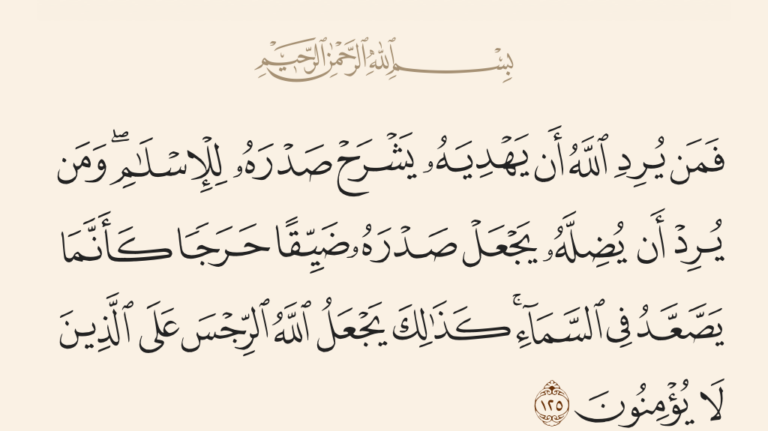 بِسْمِ اللَّهِ الرَّحْمَٰنِ الرَّحِيمِ
فَمَن يُرِدِ ٱللَّهُ أَن يَهْدِيَهُۥ يَشْرَحْ صَدْرَهُۥ لِلْإِسْلَٰمِ ۖ وَمَن
يُرِدْ أَن يُضِلَّهُۥ يَجْعَلْ صَدْرَهُۥ ضَيِّقًا حَرَجًا كَأَنَّمَا
يَصَّعَّدُ فِى ٱلسَّمَآءِ ۚ كَذَٰلِكَ يَجْعَلُ ٱللَّهُ ٱلرِّجْسَ عَلَى ٱلَّذِينَ
لَا يُؤْمِنُونَ ١٢٥